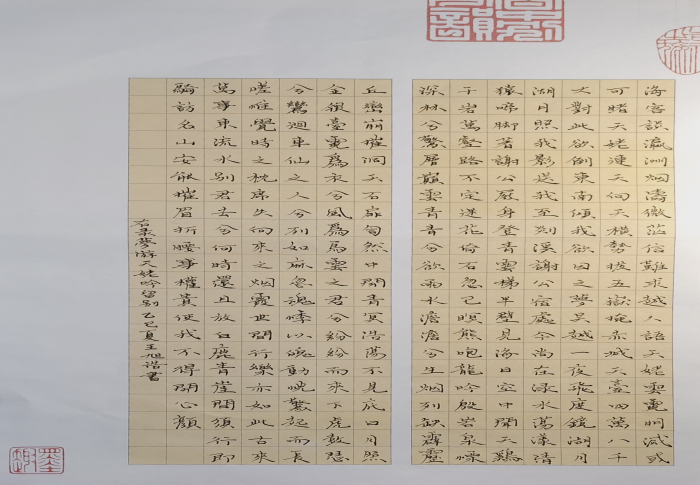 海客談瀛洲烟濤微茫信難求越人語天姥雲霓明滅或
可睹天姥連天向天橫勢拔五嶽掩赤城天臺四萬八千
丈對此欲倒東南傾我欲因之夢吳越一夜飛度鏡湖月
湖月照我影送我至剡溪謝公宿處今尚在淥水蕩漾清
猿啼腳著謝公屐身登青雲梯半壁見海日空中聞天雞
千岩萬壑路不定迷花倚石忽已暝熊咆龍吟殷岩泉慄
深林兮驚層巔雲青青兮欲雨水澹澹兮生烟列缺霹靂
丘巒崩摧洞天石扉訇然中開青冥浩蕩不見底日月照
金銀臺霓爲衣兮風爲馬雲之君兮紛紛而來下虎鼓瑟
兮鸞迴車仙之人兮列如麻忽魂悸以魄動怳驚起而長
嗟惟覺時之枕席失向來之烟霞世間行樂亦如此古來
萬事東流水別君去兮何時還且放白鹿青崖間須行即
騎訪名山安能摧眉折腰事權貴使我不得開心顏
右录夢游天姥吟留別 乙巳夏王旭諧書
墨趣